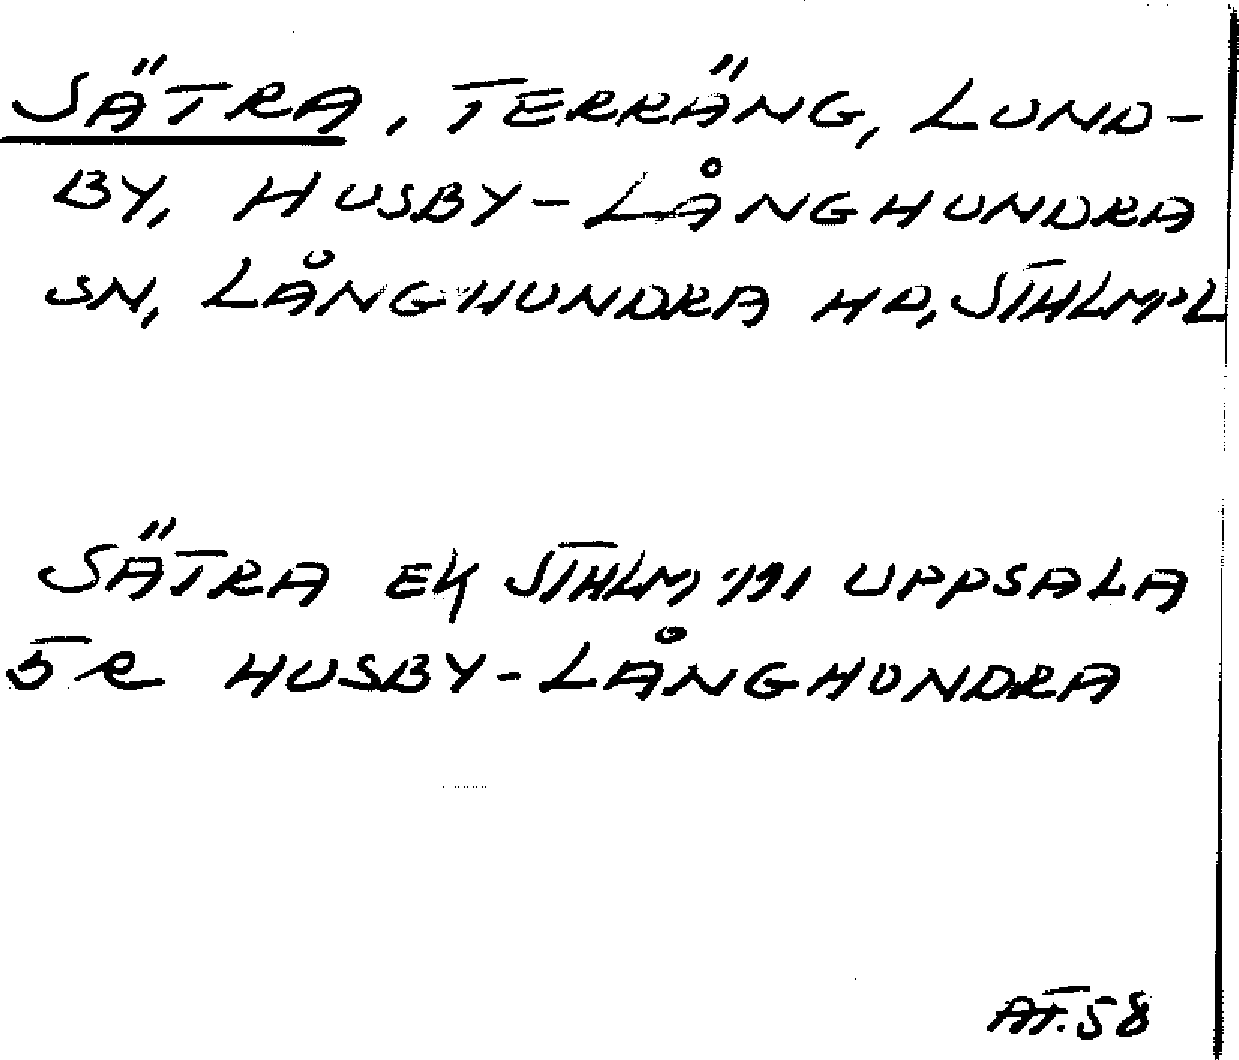 SÄTRA, TERRÄNG, LUND-
BY, HUSBY-LÅNGHUNDRA
SN, LÅNGHUNDRA HD, STHLMS L
SÄTRA EK STHLM 111 UPPSALA
5 R HUSBY-LÅNGHUNDRA
AT.58